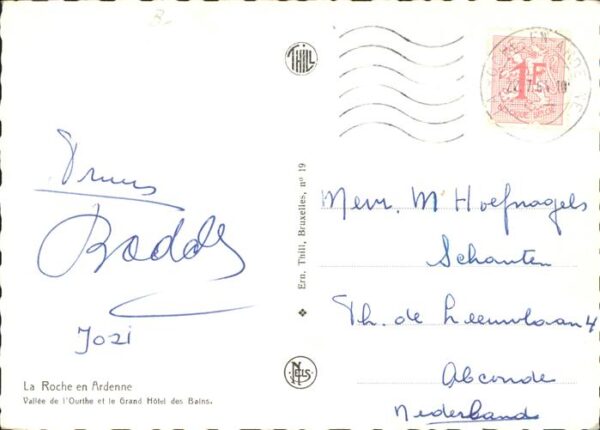 THILL
1F
BELGIQUE BELGIE
Truus
Jozi
Ern. Thill, Bruxelles, nº 19
Mevr. M Hoefnagels
Schouten
Th. de Leeuwlaan 4
Abcoude
Nederland
NELS
La Roche en Ardenne
Vallée de l'Ourthe et le Grand Hôtel des Bains.